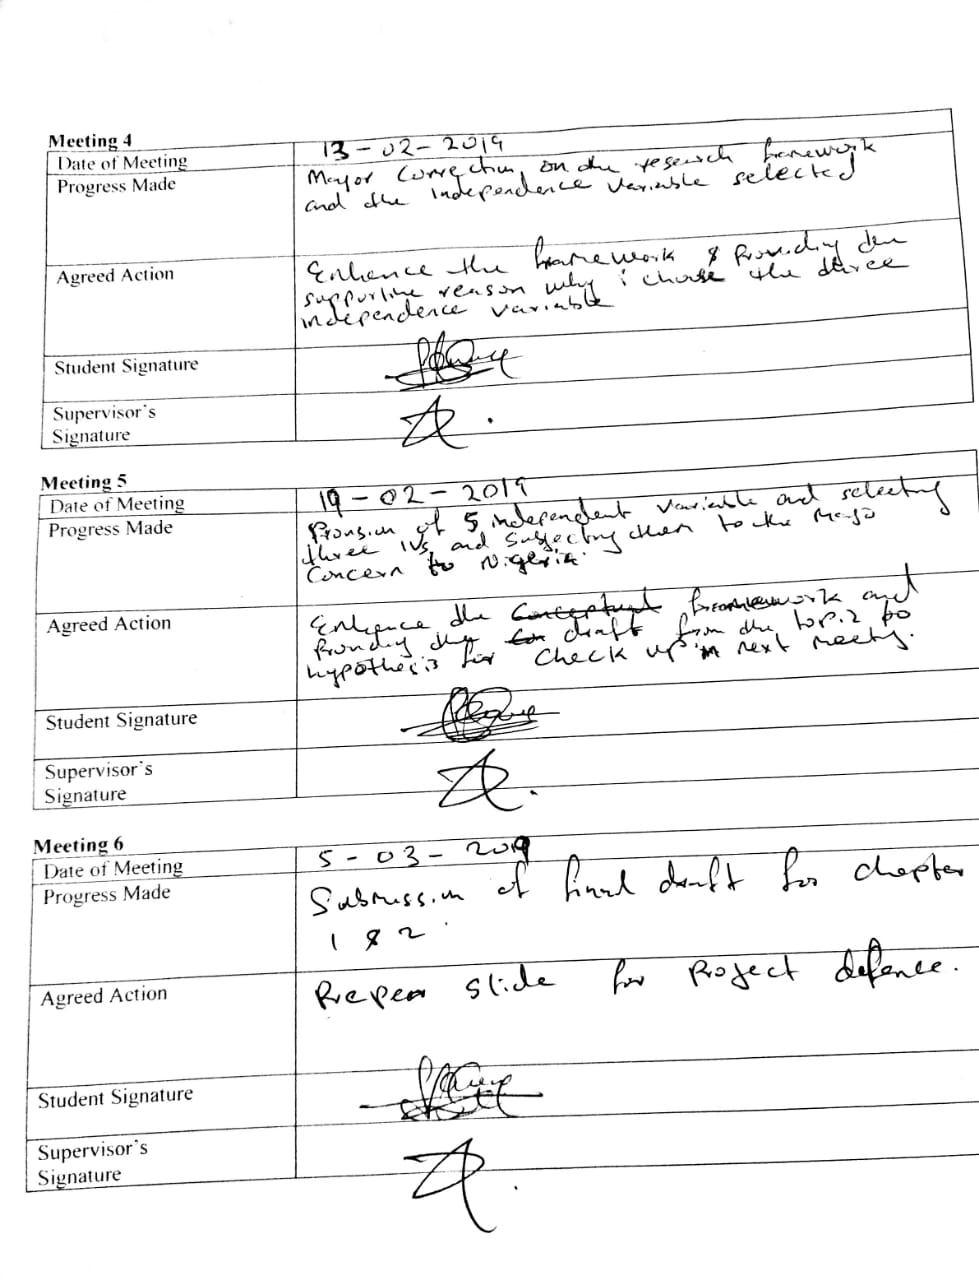 Meeting 4
Date of Meeting 13-02-2019
Progress Made Mayor Correction, on the research framework
and the Independence Variable selected
Agreed Action Enhance the framework & Providing the
supportive reason why i choose the three
independence variable
Student Signature
Supervisor's
Signature
Meeting 5
Date of Meeting 19-02-2019
Progress Made Provision of 5 independent variable and selecting
three IVs, and Subjecting them to the Major
Concern to Nigeria.
Agreed Action Enhance the Conceptual framework and
Providing the draft from the topic 2 to
hypothesis for check up in next meeting.
Student Signature
Supervisor's
Signature
Meeting 6
Date of Meeting 5-03-2019
Progress Made Submission of final draft for chapter
1 & 2.
Agreed Action Prepear slide for Project defence.
Student Signature
Supervisor's
Signature